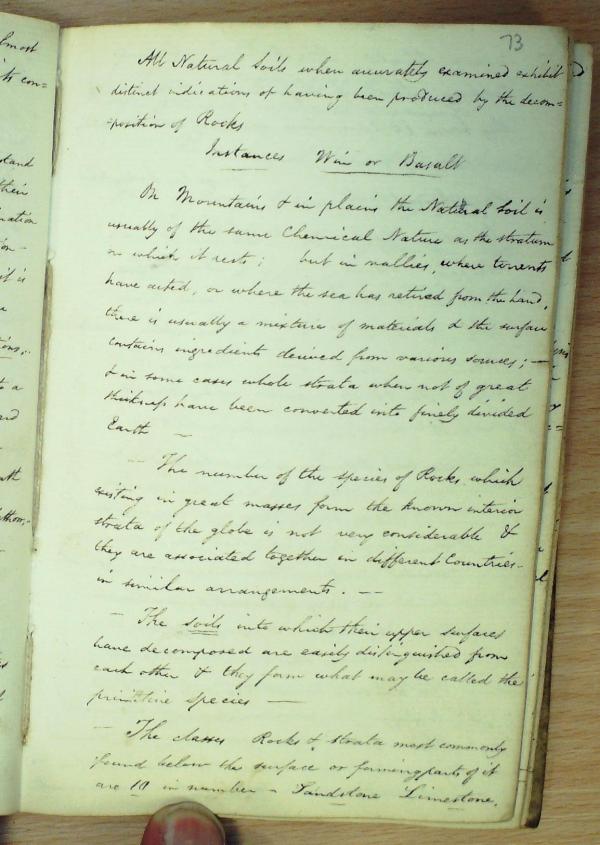 73
All Natural Soils when accurately examined exhibit
distinct indications of having been produced by the decom=
position of Rocks
Instances Win or Basalt
On Mountains & in plains the Natural Soil is
usually of the same Chemical Nature as the stratum
on which it rests; but in vallies, where torrents
have acted, or where the sea has retired from the land,
there is usually a mixture of materials & the surface
contains ingredients derived from various sources; —
& in some cases whole strata when not of great
thickness have been converted into finely divided
Earth —
— The number of the species of Rocks which
existing in great masses form the known interior
strata of the globe is not very considerable &
they are associated together in different Countries
in similar arrangements. —
— The soils into which their upper surfaces
have decomposed are easily distinguished from
each other & they form what may be called the
primitive species —
— The classes Rocks & strata most commonly
found below the surface or forming parts of it
are 10 in number – Sandstone Limestone,